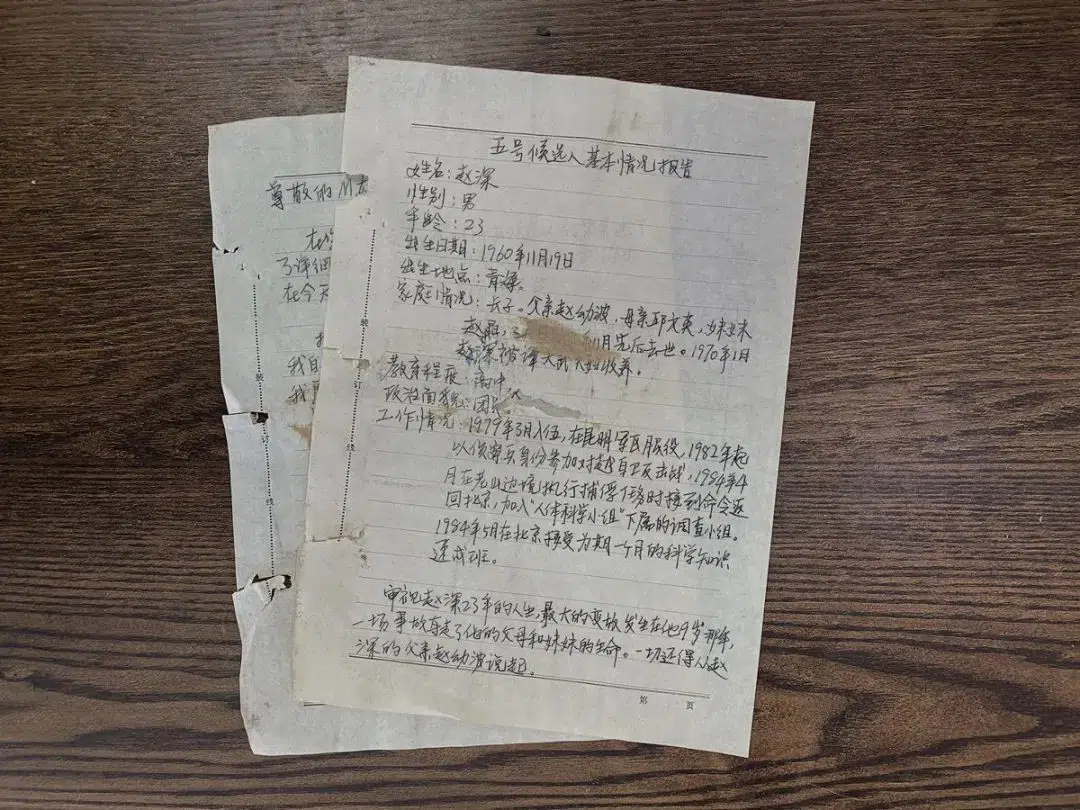 五号候选人基本情况报告
姓名：赵深
性别：男
年龄：23
出生日期：1960年11月19日
出生地点：青溪。
家庭情况：长子。父亲赵幼波，母亲邱文英，妹妹
赵 11月先后去世。1970年1月
赵深被谭大武夫妇收养。
教育程度：高中
政治面貌：团员
工作情况：1979年3月入伍，在昆明军区服役，1982年起
以侦察兵身份参加对越自卫反击战，1984年4
月在老山边境执行捕俘任务时接到命令返
回北京，加入“人体科学小组”下属的调查小组。
1984年5月在北京接受为期一个月的科学知识
速成班。
审视赵深23年的人生，最大的变故发生在他9岁那年，
一场事故夺走了他的父母和妹妹的生命。一切还得从赵
深的父亲赵幼波说起。
第 页
装 订 线
尊敬的
在
了详细
在今天
我自
我
装 订 线